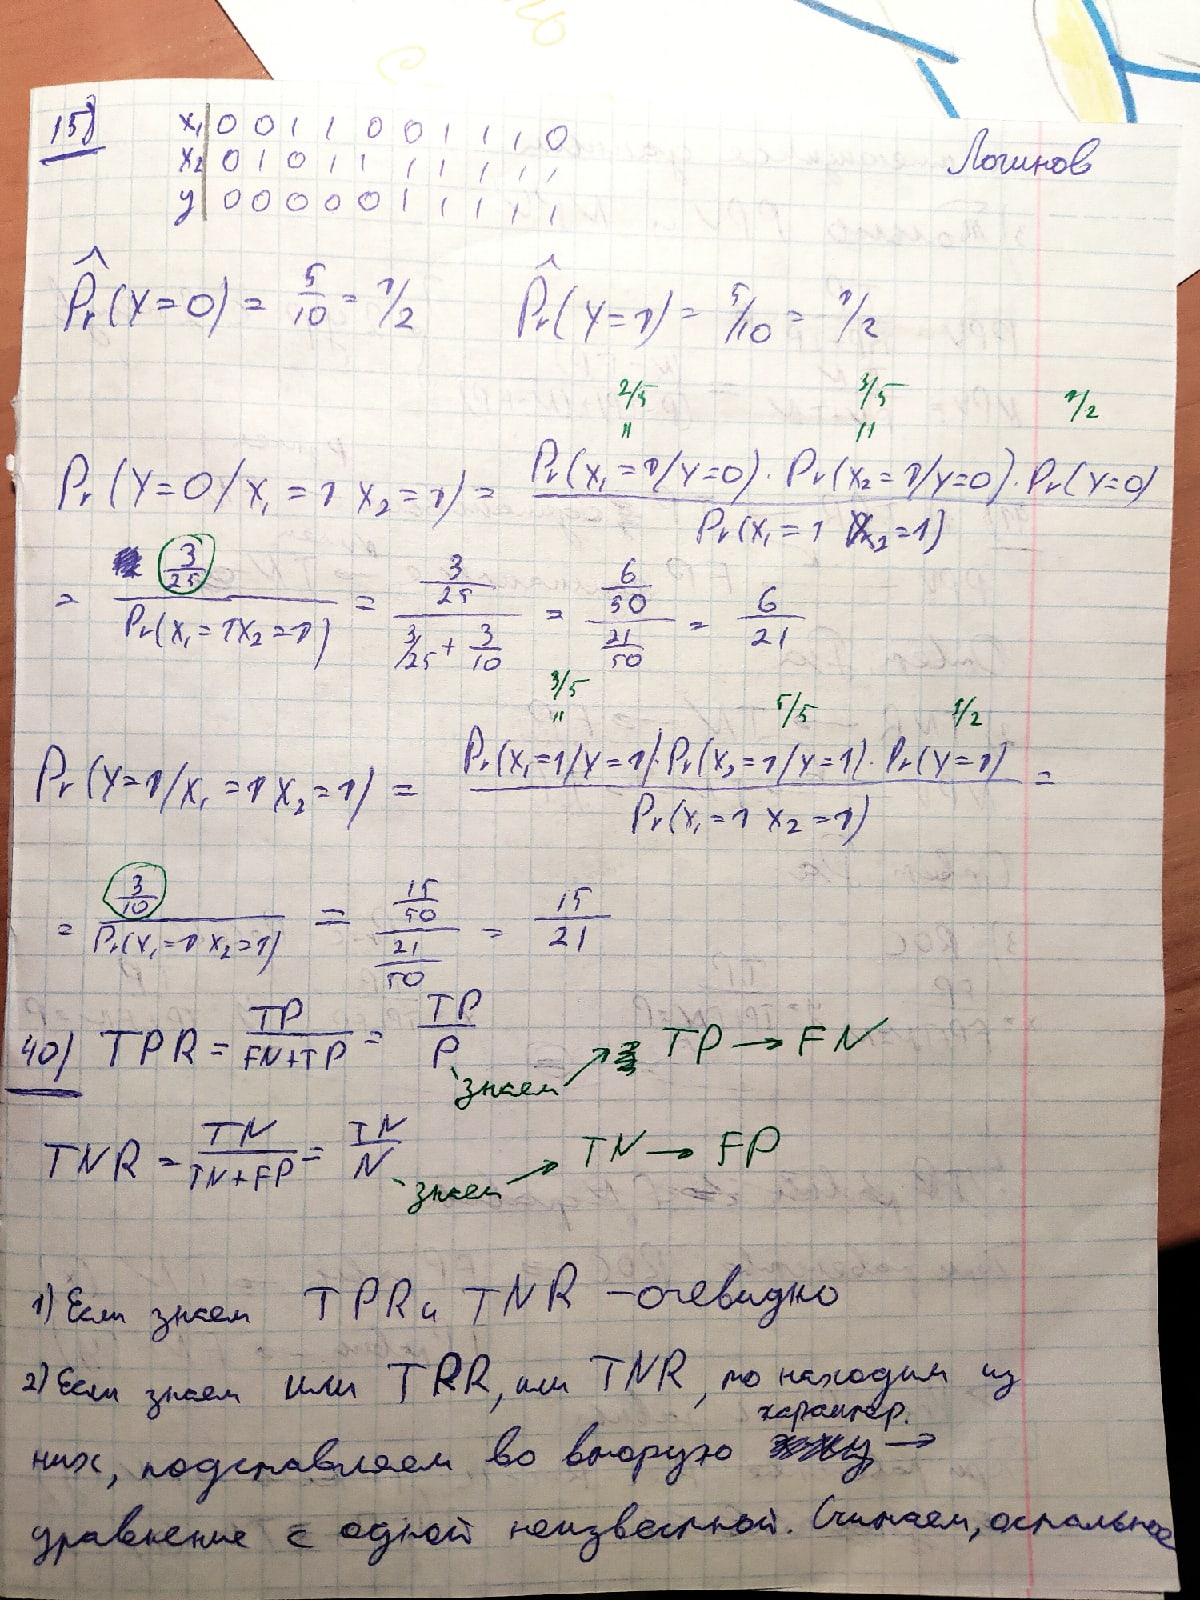 15)
Логинов
x₁ | 0 0 1 1 0 0 1 1 1 0
x₂ | 0 1 0 1 1 1 1 1 1 1
y | 0 0 0 0 0 1 1 1 1 1
P̂r(Y=0) = 5/10 = 1/2 P̂r(Y=1) = 5/10 = 1/2
2/5 3/5 1/2
Pr(Y=0/X₁=1 X₂=1) = Pr(X₁=1/Y=0)·Pr(X₂=1/Y=0)·Pr(Y=0) / Pr(X₁=1 X₂=1)
= 3/25 / Pr(X₁=1 X₂=1) = 3/25 / (3/25 + 3/10) = 6/50 / 21/50 = 6/21
3/5 5/5 1/2
Pr(Y=1/X₁=1 X₂=1) = Pr(X₁=1/Y=1)·Pr(X₂=1/Y=1)·Pr(Y=1) / Pr(X₁=1 X₂=1) =
= 3/10 / Pr(X₁=1 X₂=1) = 15/50 / 21/50 = 15/21
40) TPR = TP/(FN+TP) = TP/P знаем → TP → FN
TNR = TN/(TN+FP) = TN/N знаем → TN → FP
1) Если знаем TPR и TNR – очевидно
2) Если знаем или TPR, или TNR, то находим из
них, подставляем во вторую характер. →
уравнение с одной неизвестной. Считаем, остальное